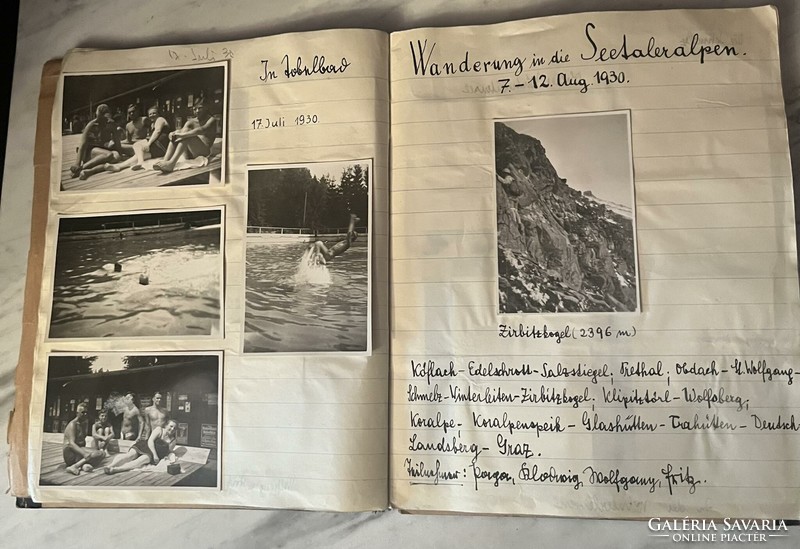 In Tobelbad
17. Juli 1930.
Wanderung in die Seetaleralpen.
7. – 12. Aug. 1930.
Zirbitzkogel (2396 m)
Köflach – Edelschrott – Salzstiegel; Feethal; Obdach – St. Wolfgang –
Schmelz – Winterleiten – Zirbitzkogel; Klipitztörl – Wolfsberg;
Koralpe – Koralpenspeik – Glashütten – Trahütten – Deutsch
Landsberg – Graz.
Teilnehmer: Wolfgang, Fritz.
GALÉRIA SAVARIA
ONLINE PIACTÉR